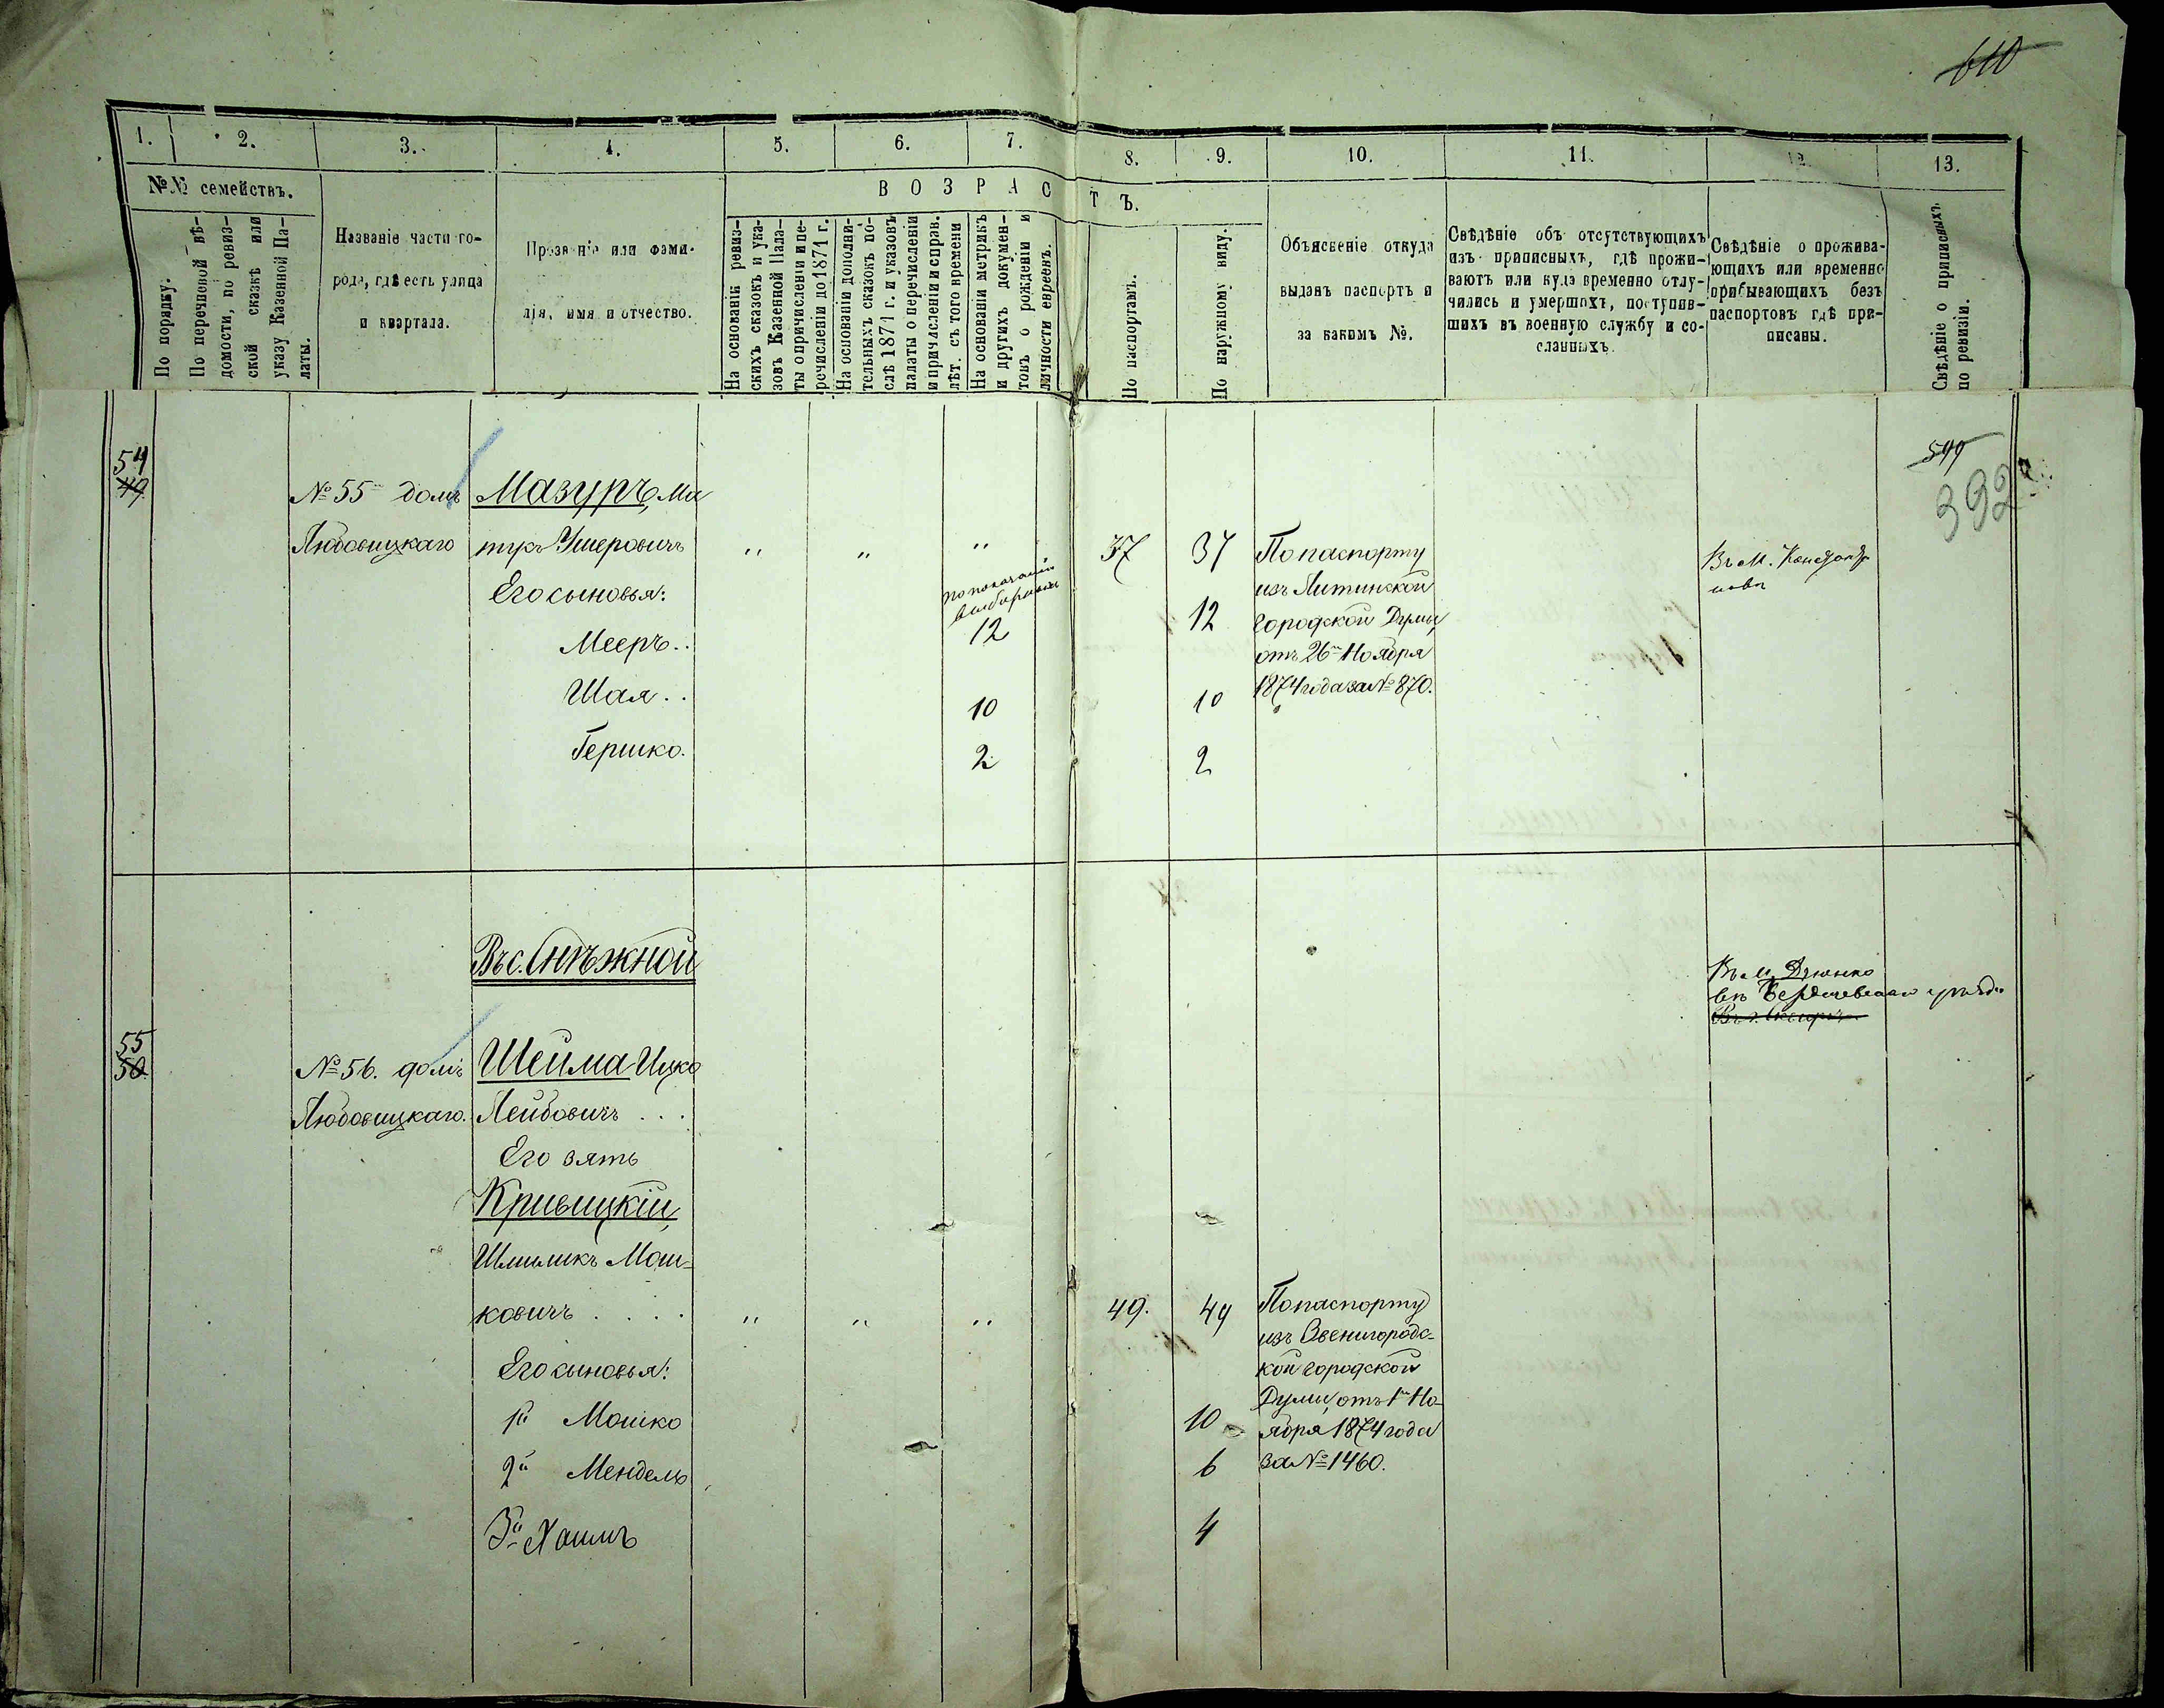 610
1. 2. 3. 4. 5. 6. 7. 8. 9. 10. 11. 12. 13.
№№ семействъ.
В О З Р А С Т Ъ.
По порядку.
По перечневой вѣ-
домости, по ревиз-
ской сказкѣ или
указу Казенной Па-
латы.
Названіе части го-
рода, гдѣ есть улица
и квартала.
Прозваніе или фами-
лія, имя и отчество.
На основаніи ревиз-
скихъ сказокъ и ука-
зовъ Казенной Пала-
ты о причисленіи и пе-
речисленіи до 1871 г.
На основаніи дополни-
тельныхъ сказокъ по-
слѣ 1871 г. и указовъ
палаты о перечисленіи
и причисленіи и справ.
лѣт. съ того времени
На основаніи метрикъ
и другихъ докумен-
товъ о рожденіи и
личности евреевъ.
По паспортамъ.
По наружному виду.
Объясненіе откуда
выданъ паспортъ и
за какимъ №.
Свѣдѣніе объ отсутствующихъ
изъ приписныхъ, гдѣ прожи-
ваютъ или куда временно отлу-
чились и умершихъ, поступив-
шихъ въ военную службу и со-
сланныхъ.
Свѣдѣніе о прожива-
ющихъ или временно
прибывающихъ безъ
паспортовъ гдѣ при-
писаны.
Свѣдѣніе о приписныхъ
по ревизіи.
599
392
54
49
№ 55 домъ
Любовицкаго
Мазуръ, Ма
Ушеровичъ
Его сыновья:
Мееръ..
Шая..
Гершко.
" " "
по показанію
12
10
2
37
37
12
10
2
По паспорту
изъ Литинской
городской Думы,
отъ 26го Ноября
1874 года за № 870.
Въ м.
Въ с. Снѣжной
Въ м. Дзюнко
въ Бердичевскаго уѣзда
Въ г. Сквирѣ
55
50
№ 56. домъ
Любовицкаго.
Шейма Ицко
Лейбовичъ . . .
Его зять
Кривицкій,
Шмиликъ Мош-
ковичъ . . . .
" " "
Его сыновья:
1й Мошко
2й Мендель
3й Хаимъ
49.
49
10
6
4
По паспорту
изъ Звенигородс-
кой городской
Думы, отъ 1го Но-
ября 1874 года
за № 1460.